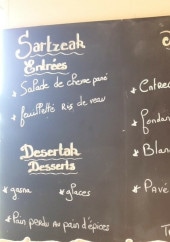 Sartzeak
Entrées
* Salade de chèvre pané
* feuilletté Ris de veau
Desertak
Desserts
* gasna * glaces
* Pain perdu au pain d'épices
Entrec
fondan
Blan
PAVÉ